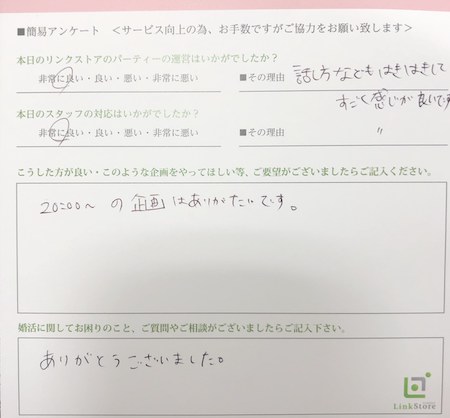 ■簡易アンケート ＜サービス向上の為、お手数ですがご協力をお願い致します＞
本日のリンクストアのパーティーの運営はいかがでしたか？
非常に良い・良い・悪い・非常に悪い ■その理由 話し方などもはきはきして
すごく感じが良いです
本日のスタッフの対応はいかがでしたか？
非常に良い・良い・悪い・非常に悪い ■その理由 〃
こうした方が良い・このような企画をやってほしい等、ご要望がございましたらご記入ください。
20:00〜 の企画はありがたいです。
婚活に関してお困りのこと、ご質問やご相談がございましたらご記入下さい。
ありがとうございました。
LinkStore